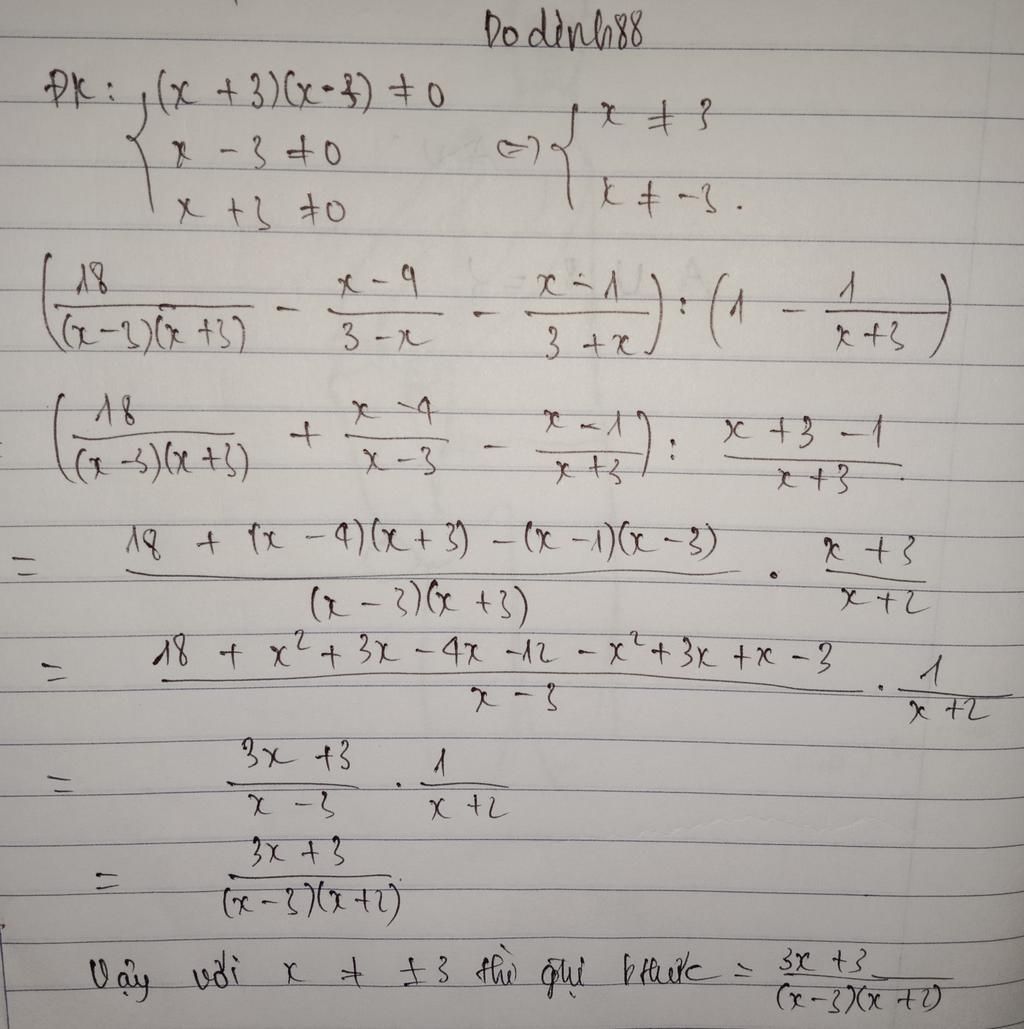 Dodinh88
ĐK: { (x + 3)(x - 3) ≠ 0
x - 3 ≠ 0
x + 3 ≠ 0
<=> { x ≠ 3
x ≠ -3.
(18/((x-3)(x+3)) - (x-4)/(3-x) - (x-1)/(3+x)) : (1 - 1/(x+3))
= (18/((x-3)(x+3)) + (x-4)/(x-3) - (x-1)/(x+3)) : (x+3-1)/(x+3)
= (18 + (x-4)(x+3) - (x-1)(x-3))/((x-3)(x+3)) . (x+3)/(x+2)
= (18 + x² + 3x - 4x - 12 - x² + 3x + x - 3)/(x-3) . 1/(x+2)
= (3x+3)/(x-3) . 1/(x+2)
= (3x+3)/((x-3)(x+2))
Vậy với x ≠ ±3 thì gtrị bthức = (3x+3)/((x-3)(x+2))